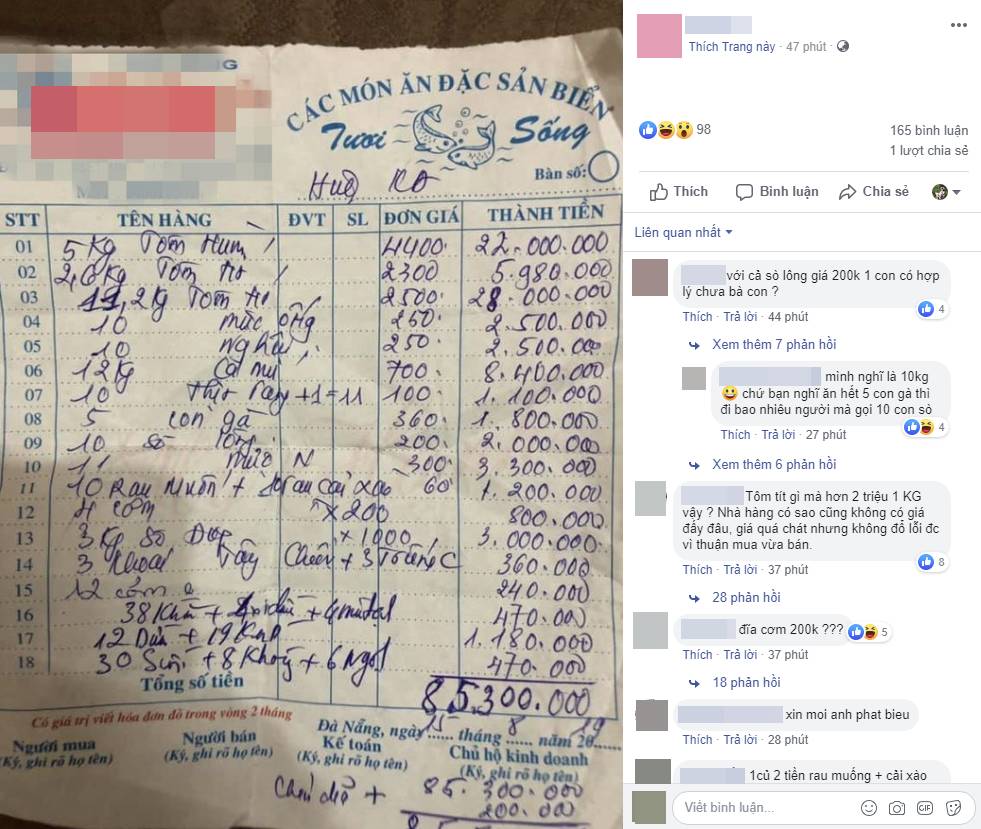 CÁC MÓN ĂN ĐẶC SẢN BIỂN
Tươi Sống
Bàn số:
STT TÊN HÀNG ĐVT SL ĐƠN GIÁ THÀNH TIỀN
01 5 Kg Tôm Hum 4400 22.000.000
02 2,6 Kg Tôm 2300 5.980.000
03 2 Kg Tôm 2500 28.000.000
04 10 mức ống 250 2.500.000
05 10 nghêu 250 2.500.000
06 12 Kg Cá mú 700 8.400.000
07 10 +1=11 100 1.100.000
08 5 con gà 360 1.800.000
09 10 sò lông 200 2.000.000
10 11 mức N 300 3.300.000
11 10 Rau muốn + Rau cải xào 60 1.200.000
12 4 cơm x 200 800.000
13 3 Kg Sò x 1000 3.000.000
14 3 Khoai Tây Chiên + 3 Trứng C 360.000
15 12 cơm 240.000
16 38 Khăn + 470.000
17 12 + 19 1.180.000
18 30 + 8 + 6 470.000
Tổng số tiền 85.300.000
Có giá trị viết hóa đơn đỏ trong vòng 2 tháng
Đà Nẵng, ngày 25 tháng 8 năm 2019
Người mua
(Ký, ghi rõ họ tên)
Người bán
(Ký, ghi rõ họ tên)
Kế toán
(Ký, ghi rõ họ tên)
Chủ hộ kinh doanh
(Ký, ghi rõ họ tên)
+ 85.300.000
200.000
Thích Trang này · 47 phút ·
98
165 bình luận
1 lượt chia sẻ
Thích Bình luận Chia sẻ
Liên quan nhất
với cả sò lông giá 200k 1 con có hợp
lý chưa bà con ?
4
Thích · Trả lời · 44 phút
Xem thêm 7 phản hồi
mình nghĩ là 10kg
chứ bạn nghĩ ăn hết 5 con gà thì
đi bao nhiêu người mà gọi 10 con sò
4
Thích · Trả lời · 27 phút
Xem thêm 6 phản hồi
Tôm tít gì mà hơn 2 triệu 1 KG
vậy ? Nhà hàng có sao cũng không có giá
đấy đâu, giá quá chát nhưng không đổ lỗi đc
vì thuận mua vừa bán.
8
Thích · Trả lời · 37 phút
28 phản hồi
đĩa cơm 200k ???
5
Thích · Trả lời · 37 phút
18 phản hồi
xin moi anh phat bieu
Thích · Trả lời · 28 phút
1củ 2 tiền rau muống + cải xào
Viết bình luận...
GIF